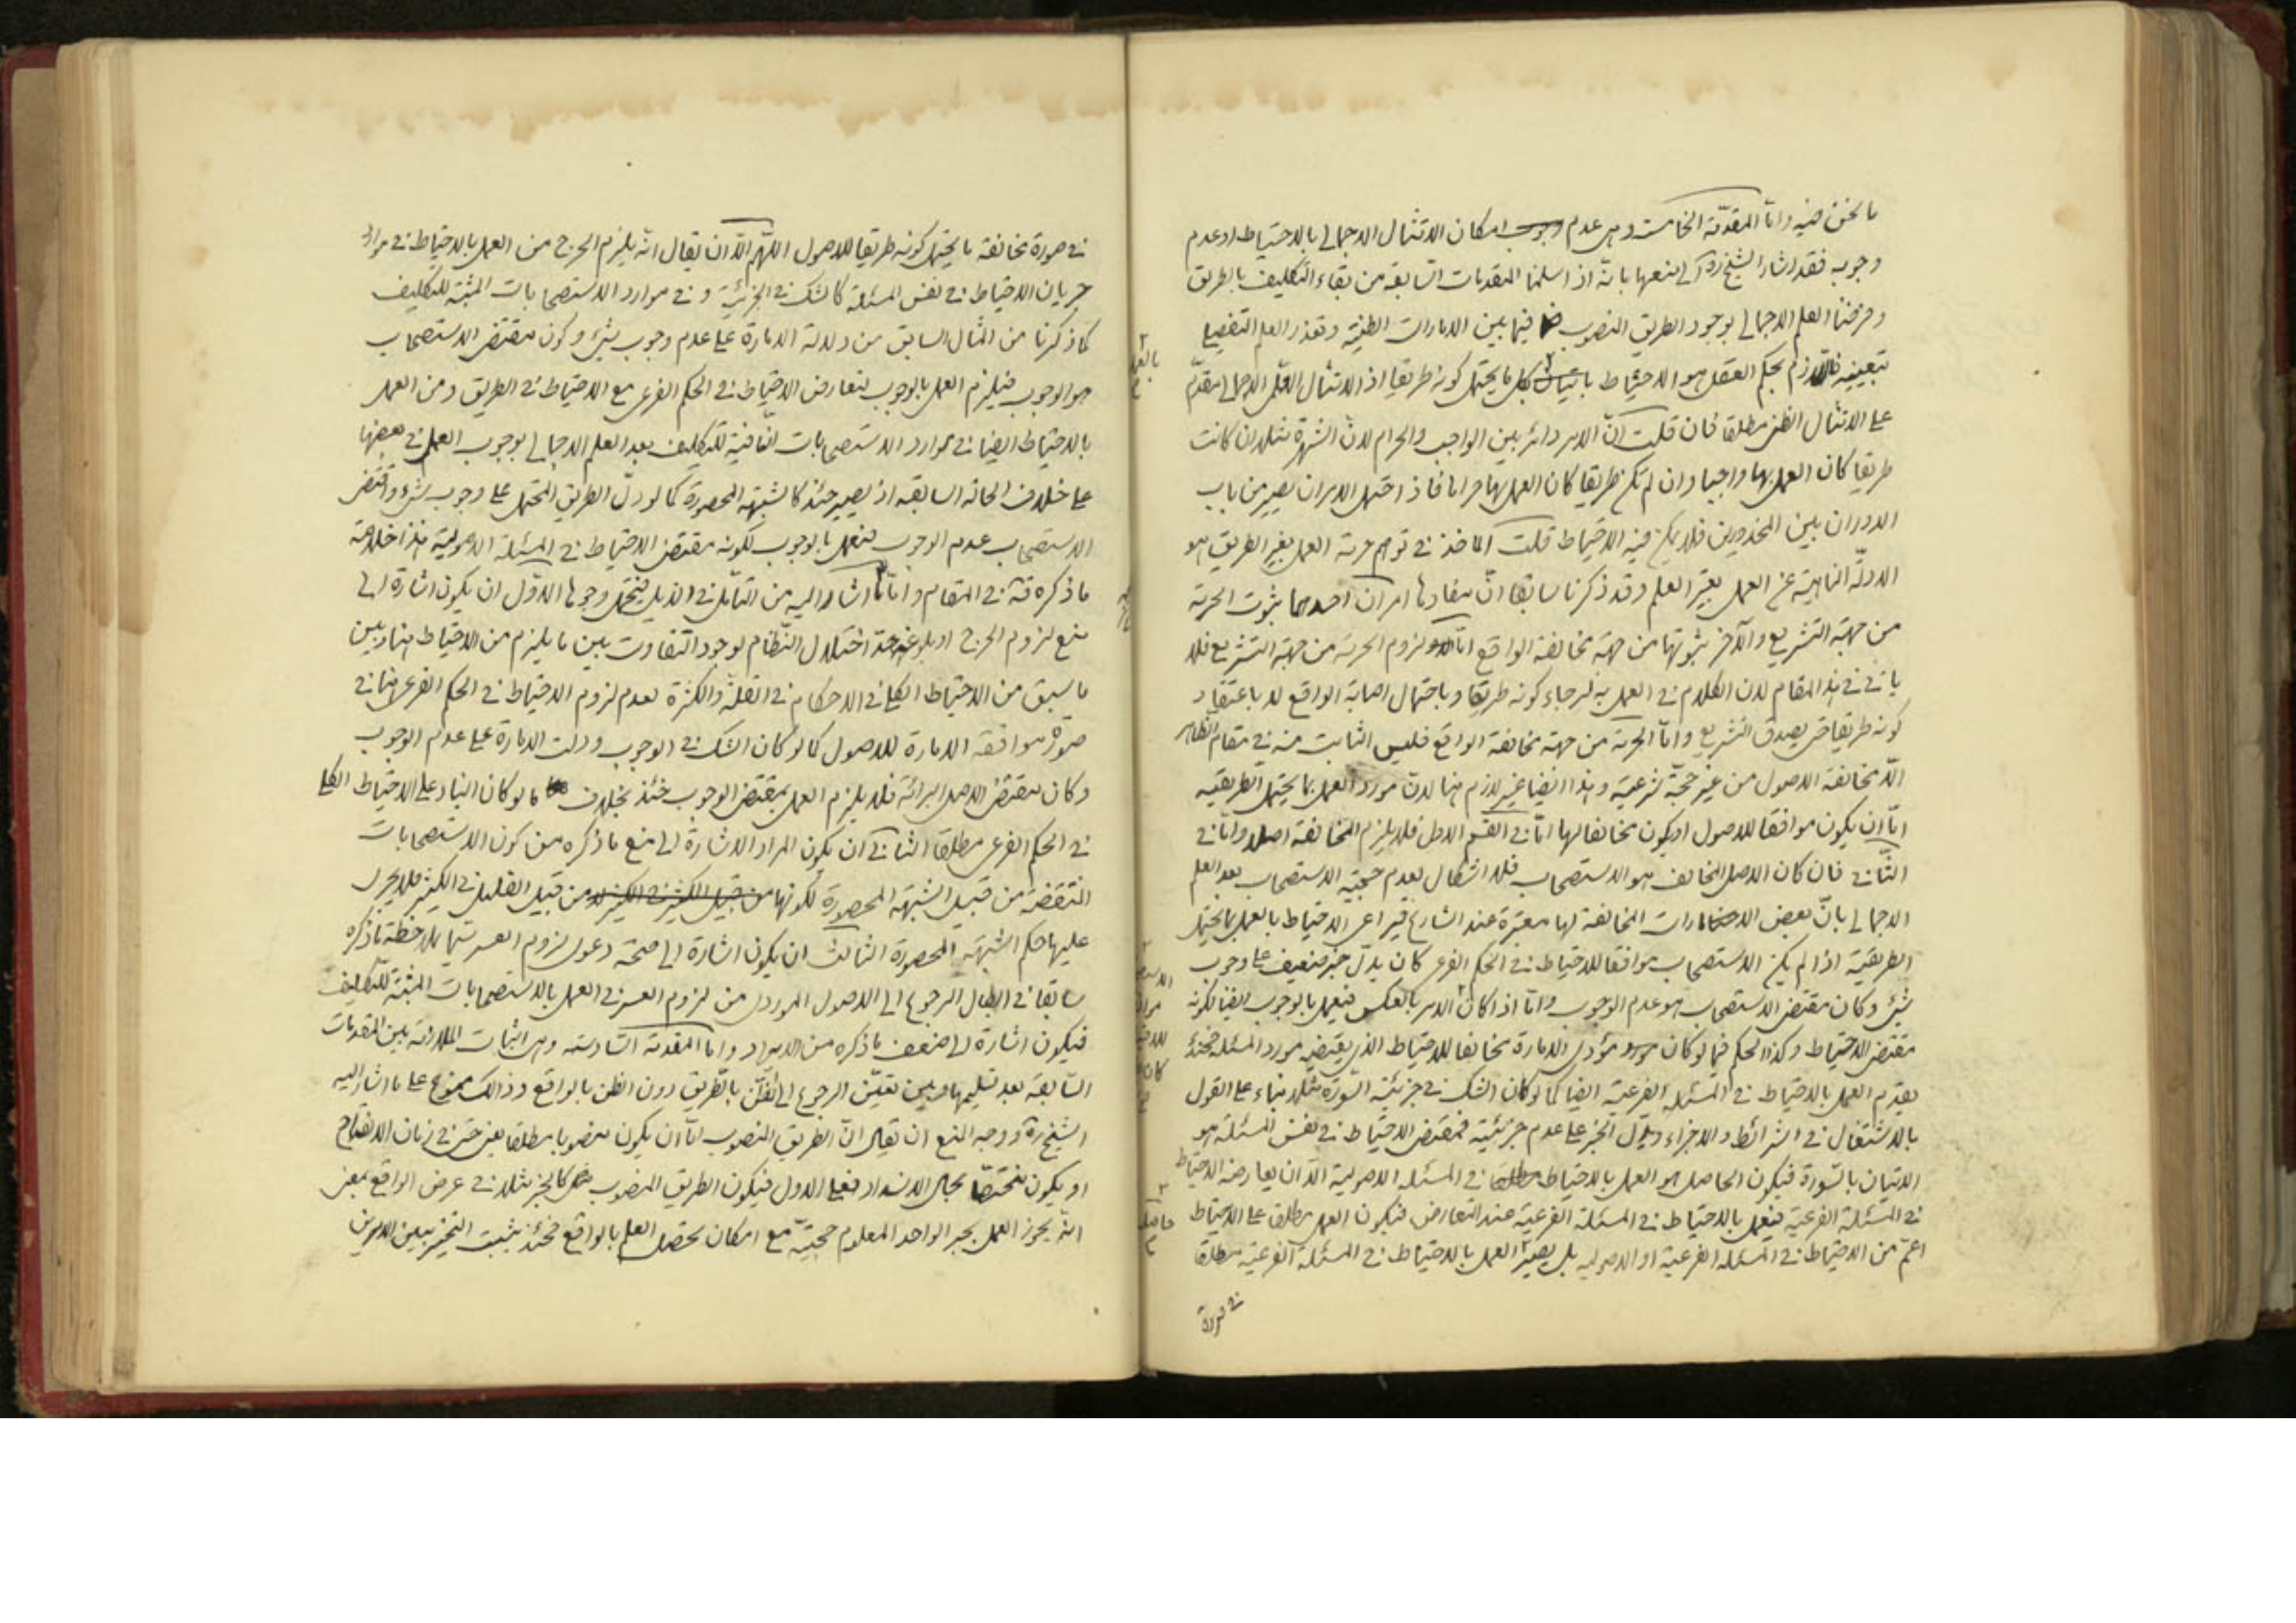 ما نحن فيه وامّا المقدّمة الخامسة وهى عدم وجوب امكان الامتثال الاجمالى بالاحتياط او عدم
وجوبه فقد اشار الشيخ ره الى منعها بانّه اذا سلمنا المقدمات السّابقة من بقاء التكليف بالطريق
وفرضنا العلم الاجمالى بوجود الطريق المنصوب فيما بين الامارات الظنيّة وتعذر العلم التفصيلى
بتعيينه فاللازم بحكم العقل هو الاحتياط باتيان كل ما يحتمل كونه طريقا اذ الامتثال العلمى الاجمالى مقدّم
على الامتثال الظنى مطلقا فان قلت انّ الامر دائر بين الواجب والحرام لانّ الشهرة مثلا ان كانت
طريقا كان العمل بها واجبا وان لم تكن طريقا كان العمل بها حراما فاذا احتمل الامران يصير من باب
الدوران بين المحذورين فلا يمكن فيه الاحتياط قلت الماخذ فى توهم حرمة العمل بغير الطريق هو
الادلّة الناهية عن العمل بغير العلم وقد ذكرنا سابقا انّ مفادها امران احدهما ثبوت الحرمة
من جهة التشريع والآخر ثبوتها من جهة مخالفة الواقع امّا لزوم الحرمة من جهة التشريع فلا
ياتى فى هذا المقام لان الكلام فى العمل به لرجاء كونه طريقا وباحتمال اصابة الواقع لا باعتقاد
كونه طريقا حتى يصدق التشريع وامّا الحرمة من جهة مخالفة الواقع فليس الثابت منه فى مقام الظاهر
الّا مخالفة الاصول من غير حجّة شرعيّة وهذا ايضا غير لازم هنا لانّ مورد العمل بما يحتمل الطريقيّة
امّا ان يكون موافقا للاصول او يكون مخالفا لها امّا فى القسم الاول فلا يلزم المخالفة اصلا وامّا فى
الثّانى فان كان الاصل المخالف هو الاستصحاب فلا اشكال بعدم حجيّة الاستصحاب بعد العلم
الاجمالى بانّ بعض الامارات المخالفة لها معتبرة عند الشارع فيراعى الاحتياط بالعمل بما يحتمل
الطريقيّة اذا لم يكن الاستصحاب موافقا للاحتياط فى الحكم الفرعى كان يدلّ خبر ضعيف على وجوب
شئ وكان مقتضى الاستصحاب هو عدم الوجوب وامّا اذا كان الامر بالعكس فيعمل بالوجوب ايضا لكونه
مقتضى الاحتياط وكذا الحكم فيما لو كان مؤدى الامارة مخالفا للاحتياط الذى يقتضيه مورد المسئلة فحينئذ
يقدم العمل بالاحتياط فى المسئلة الفرعيّة ايضا كما لو كان الشك فى جزئيّة السّورة مثلا بناء على القول
بالاشتغال فى الشرائط والاجزاء ودلّ الخبر على عدم جزئيّته فمقتضى الاحتياط فى نفس المسئلة هو
الاتيان بالسّورة فيكون الحاصل هو العمل بالاحتياط مطلقا فى المسئلة الاصولية الّا ان يعارضه الاحتياط
فى المسئلة الفرعيّة فيعمل بالاحتياط فى المسئلة الفرعيّة عند التعارض فيكون العمل مطلقا على الاحتياط
اعمّ من الاحتياط فى المسئلة الفرعيّة او الاصوليه بل يصير العمل بالاحتياط فى المسئلة الفرعيّة مطلقا
فى صورة
فى صورة مخالفة ما يحتمل كونه طريقا للاصول اللّهم الّا ان يقال انّه يلزم الحرج من العمل بالاحتياط فى موارد
جريان الاحتياط فى نفس المسئلة كالشك فى الجزئيّة وفى موارد الاستصحابات المثبتة للتكليف
كما ذكرنا من المثال السابق من دلالة الامارة على عدم وجوب شئ وكون مقتضى الاستصحاب
هو الوجوب فيلزم العمل بالوجوب لتعارض الاحتياط فى الحكم الفرعى مع الاحتياط فى الطريق ومن العمل
بالاحتياط ايضا فى موارد الاستصحابات النّافية للتكليف بعد العلم الاجمالى بوجوب العمل فى بعضها
على خلاف الحالة السابقة اذ يصير حينئذ كالشبهة المحصورة كما لو دلّ الطريق المحتمل على وجوب شئ واقتضى
الاستصحاب عدم الوجوب فيعمل بالوجوب لكونه مقتضى الاحتياط فى المسئلة الاصولية هذا خلاصة
ما ذكره قده فى المقام وامّا ما اشار اليه من التامّل فى الذيل فيحتمل وجوها الاوّل ان يكون اشارة الى
منع لزوم الحرج او بلوغه حدّ اختلال النّظام لوجود التفاوت بين ما يلزم من الاحتياط هنا وبين
ما سبق من الاحتياط الكلى فى الاحكام فى القلّة والكثرة لعدم لزوم الاحتياط فى الحكم الفرعى هنا فى
صورة موافقة الامارة للاصول كما لو كان الشك فى الوجوب ودلّت الامارة على عدم الوجوب
وكان مقتضى الاصل البرائة فلا يلزم العمل بمقتضى الوجوب حينئذ بخلاف ما لو كان البناء على الاحتياط الكلى
فى الحكم الفرعى مطلقا الثانى ان يكون المراد الاشارة الى منع ما ذكره من كون الاستصحابات
المنتقضة من قبيل الشبهة المحصورة لكونها من قبيل الكثير فى الكثير لا من قبيل القليل فى الكثير فلا يجرى
عليها حكم الشبهة المحصورة الثالث ان يكون اشارة الى صحّة دعوى لزوم العسر بملاحظة ما ذكره
سابقا فى ابطال الرجوع الى الاصول الموردى من لزوم العسر فى العمل بالاستصحابات المثبتة للتكليف
فيكون اشارة الى ضعف ما ذكره من الايراد وامّا المقدمة السّادسة وهى اثبات الملازمة بين المقدمات
السّابقة بعد تسليمها وبين تعيّن الرجوع الى الظنّ بالطّريق دون الظن بالواقع فذلك ممنوع على ما اشار اليه
الشيخ ره ووجه المنع ان يقال انّ الطريق المنصوب امّا ان يكون منصوبا مطلقا يعنى حتى فى زمان الانفتاح
او يكون مختصّا بحال الانسداد فعلى الاول فيكون الطريق المنصوب كالخبر مثلا فى عرض الواقع بمعنى
انّه يجوز العمل بخبر الواحد المعلوم حجيّته مع امكان تحصيل العلم بالواقع فحينئذ يثبت التخيير بين الامرين